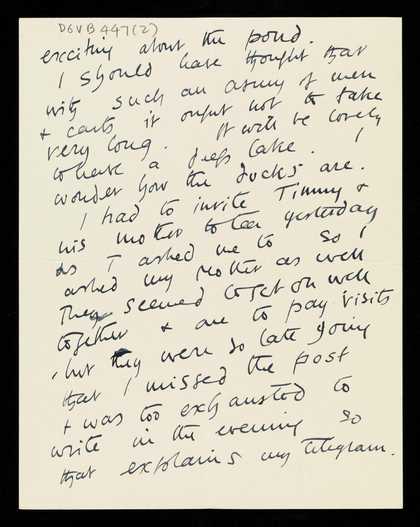 DGVB 447(2)
exciting about the pond.
I should have thought that
with such an army of men
& carts it ought not to take
very long. It will be lovely
to have a deep lake. I
wonder how the ducks are.
I had to invite Timmy &
his mother to tea yesterday
as T asked me to so I
asked my Mother as well
They seemed to get on well
together & are to pay visits
, but they were so late going
that I missed the post
& was too exhausted to
write in the evening so
that explains my telegram.